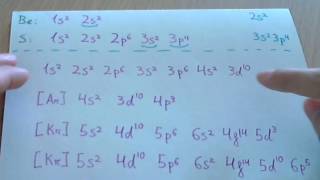 Be: 1s² 2s² 2s²
S: 1s² 2s² 2p⁶ 3s² 3p⁴ 3s²3p⁴
1s² 2s² 2p⁶ 3s² 3p⁶ 4s² 3d¹⁰
[Ar] 4s² 3d¹⁰ 4p³
[Kr] 5s² 4d¹⁰ 5p⁶ 6s² 4f¹⁴ 5d³
[Kr] 5s² 4d¹⁰ 5p⁶ 6s² 4f¹⁴ 5d¹⁰ 6p⁵